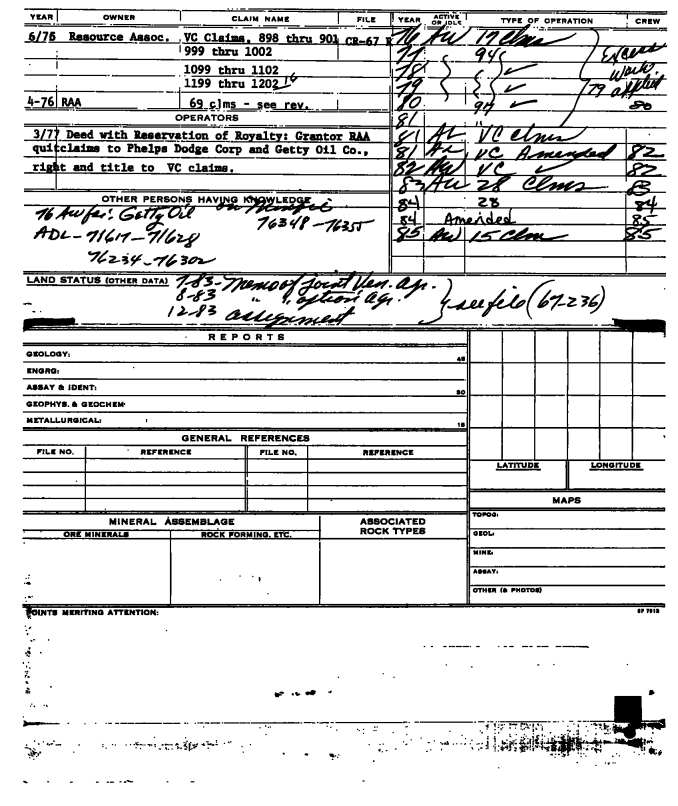 YEAR OWNER CLAIM NAME FILE YEAR ACTIVE OR IDLE TYPE OF OPERATION CREW
6/75 Resource Assoc. VC Claims, 898 thru 901 CR-67 76 AW 17 Clms
999 thru 1002 77 94
1099 thru 1102 78 ✓
1199 thru 1202 79 ✓
Excess work 79 applied
4-76 RAA 69 clms - see rev. 80 94 ✓ 80
OPERATORS 81 "
3/77 Deed with Reservation of Royalty: Grantor RAA 81 AL VC clms
quitclaims to Phelps Dodge Corp and Getty Oil Co., 81 VC Amended 82
right and title to VC claims. 82 AW VC ✓ 82
83 AW 28 Clms 83
OTHER PERSONS HAVING KNOWLEDGE 84 28 84
76 Aw for: Getty Oil 76348-76355 84 Amended 85
ADL-71617-71628 85 AW 15 Clm 85
76234-76302
LAND STATUS (OTHER DATA) 7-83-Memo of Joint Ven. Agr.
8-83 " " option Agr. see file (67-236)
12-83 assignment
REPORTS
GEOLOGY: 45
ENGRG:
ASSAY & IDENT: 30
GEOPHYS. & GEOCHEM:
METALLURGICAL: 15
GENERAL REFERENCES
FILE NO. REFERENCE FILE NO. REFERENCE
LATITUDE LONGITUDE
MAPS
MINERAL ASSEMBLAGE ASSOCIATED ROCK TYPES TOPOG:
ORE MINERALS ROCK FORMING, ETC. GEOL:
MINE:
ASSAY:
OTHER (& PHOTOS)
POINTS MERITING ATTENTION: